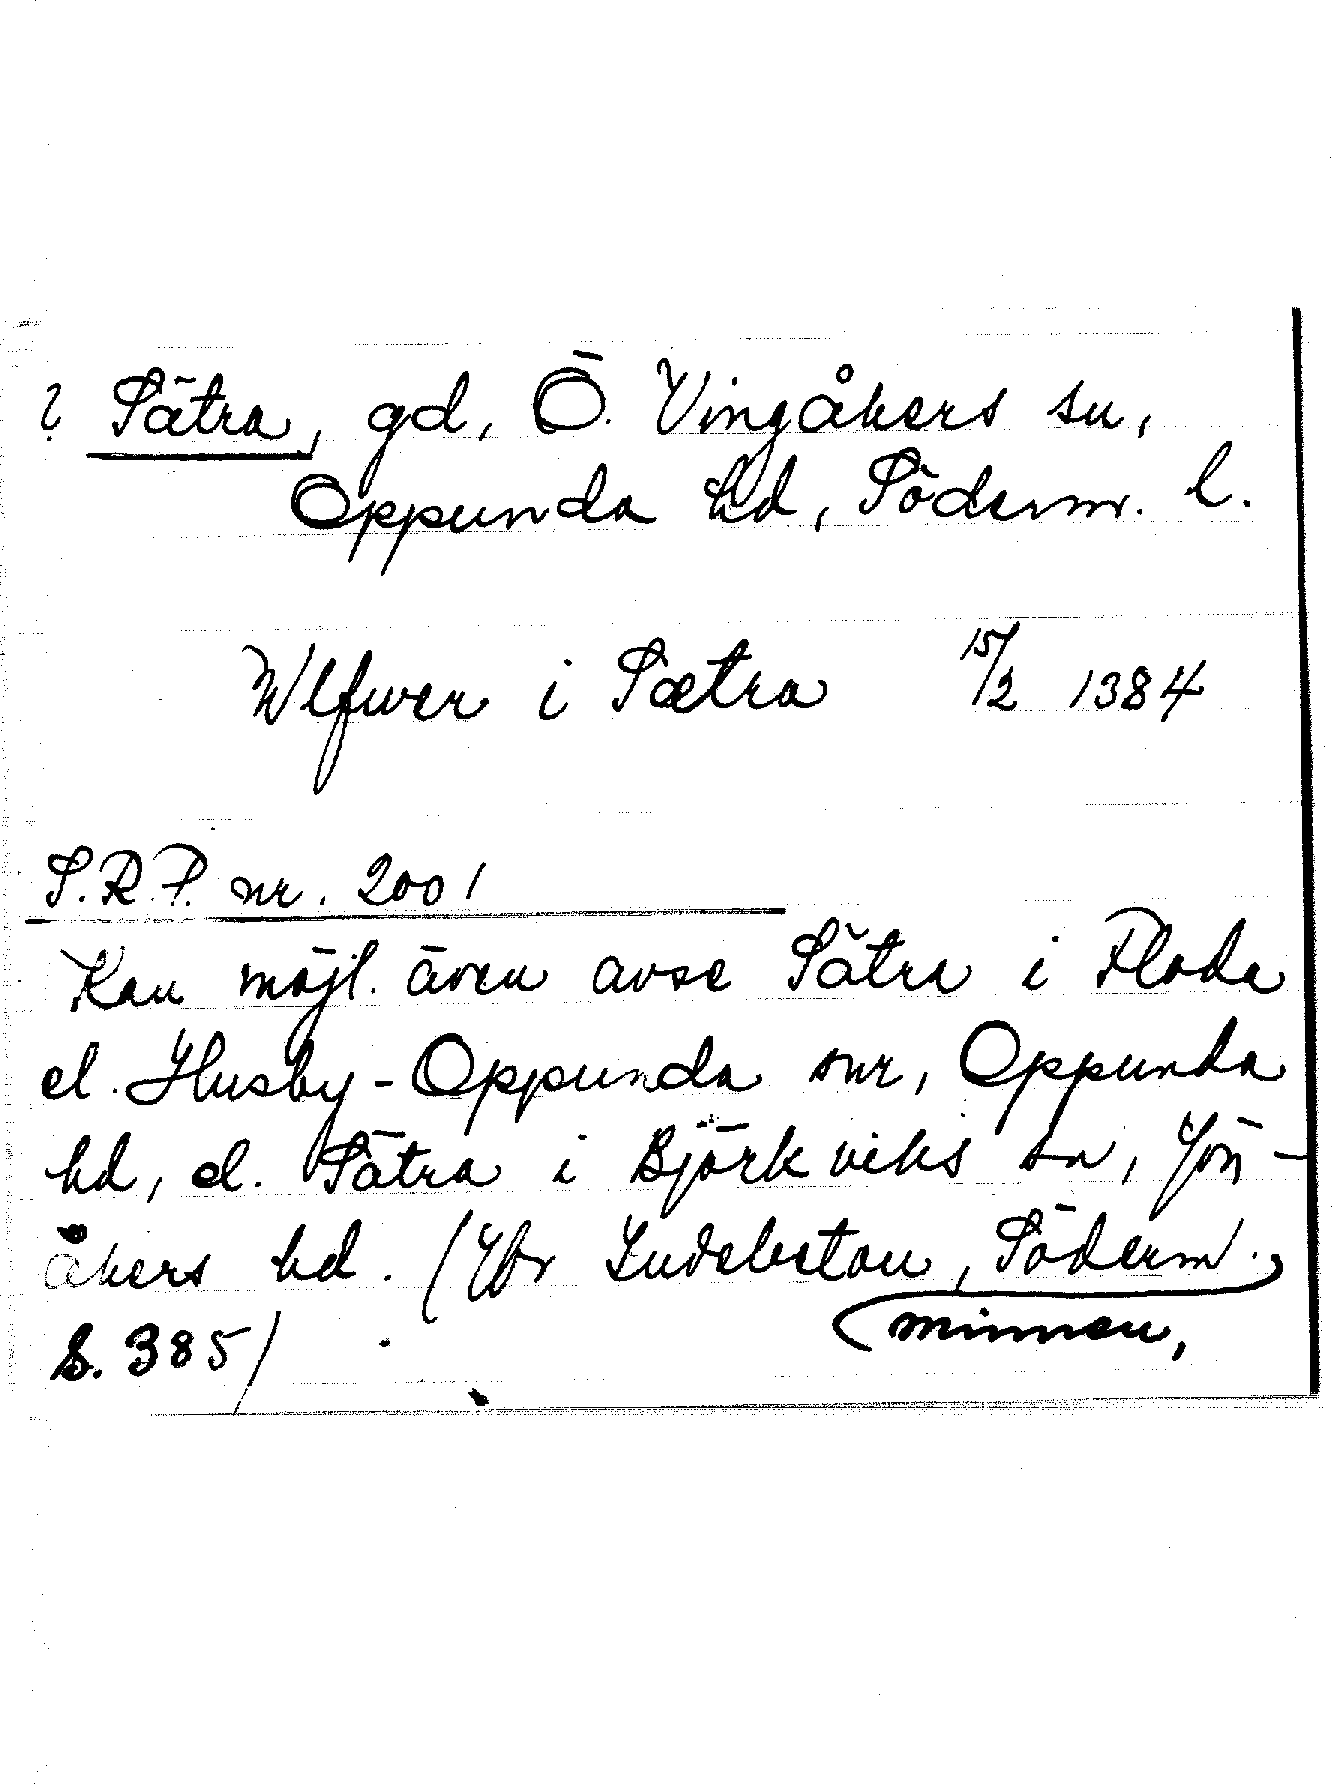 ? Sätra, gd, Ö. Vingåkers sn,
Oppunda hd, Söderm. l.
Wlfwer i Sætra 15/2 1384
S.R.P. nr. 2001
Kan möjl. även avse Sätra i Floda
el. Husby-Oppunda snr, Oppunda
hd, el. Sätra i Björkviks sn, Jön-
åkers hd. (Jfr Sudelestou, Söderm.
minnen,
S. 385)